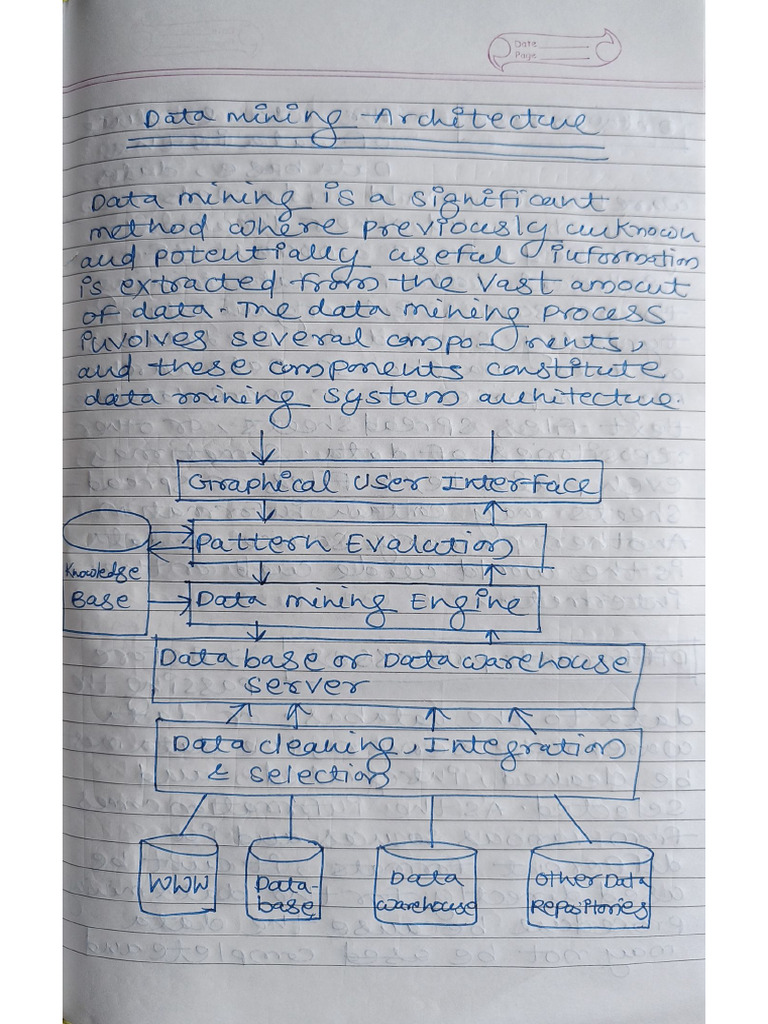 Date
Page
Data mining Architecture
Data mining is a significant
method where previously unknown
and potentially useful information
is extracted from the vast amount
of data. The data mining process
involves several compo-nents,
and these components constitute
data mining system architecture.
Graphical User Interface
Pattern Evalation
Knowledge
Base
Data mining Engine
Data base or Data warehouse
server
Data cleaning, Integration
& selection
WWW
Data-
base
Data
warehouse
other Data
Repositories